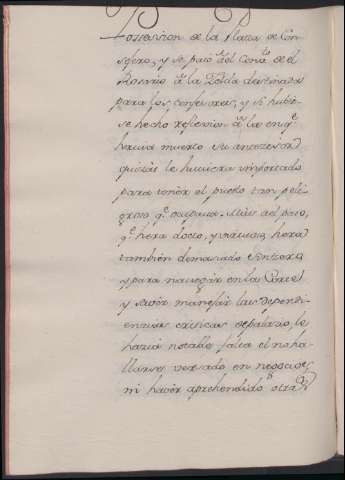 Possession de la Plaza de Con-
sejero, y se pasó del Convto de el
Rosario a la Zelda destinada
para los confesores, y si hubie-
se hecho reflexion a la en qe
havia muerto su antecesor
quizás le huviera importado
para tener el puesto tan peli-
groso qe ocupava. Mas del paso,
qe hera docto, y virtuoso, hera
tambien demasiado sincero
y para navegar en la Corte
y saver manejar las dependi-
encias criticas de palazio, le
hazia notable falta el no ha-
llarse versado en negocios,
ni haver aprehendido otra